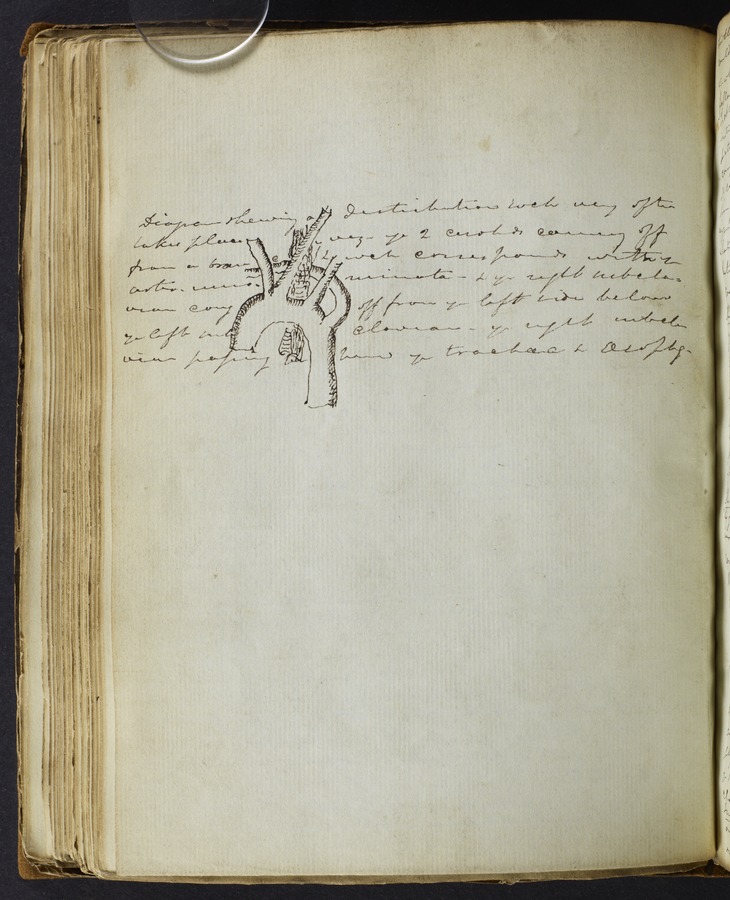 Diagram shewing a distribution wch very often
takes place ye 2 carotids coming off
from a trun wch corresponds with ye
arter. minata - & ye right subcla-
vian comg off from ye left side below
ye left sub clavian - ye right subcla
vian passing behind ye trachea & Œsophg-